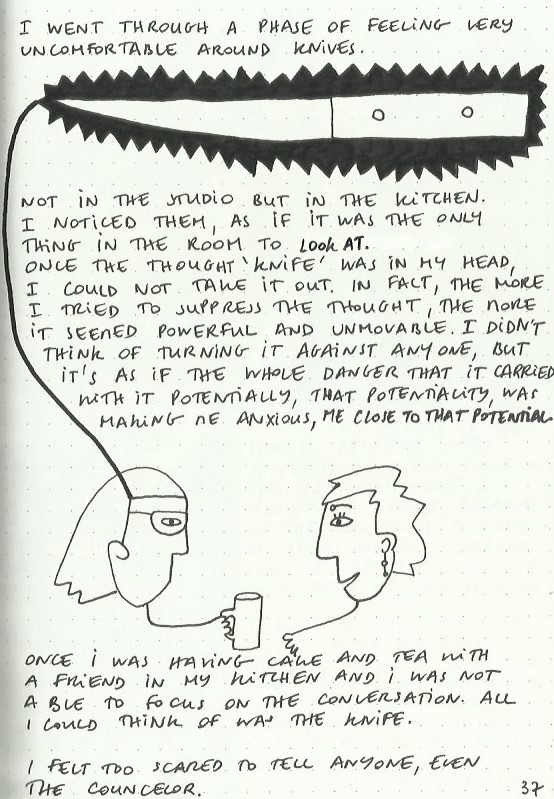 I WENT THROUGH A PHASE OF FEELING VERY
UNCOMFORTABLE AROUND KNIVES.
NOT IN THE STUDIO BUT IN THE KITCHEN.
I NOTICED THEM, AS IF IT WAS THE ONLY
THING IN THE ROOM TO LOOK AT.
ONCE THE THOUGHT 'KNIFE' WAS IN MY HEAD,
I COULD NOT TAKE IT OUT. IN FACT, THE MORE
I TRIED TO SUPPRESS THE THOUGHT, THE MORE
IT SEEMED POWERFUL AND UNMOVABLE. I DIDN'T
THINK OF TURNING IT AGAINST ANYONE, BUT
IT'S AS IF THE WHOLE DANGER THAT IT CARRIED
WITH IT POTENTIALLY, THAT POTENTIALITY, WAS
MAKING ME ANXIOUS, ME CLOSE TO THAT POTENTIAL
ONCE I WAS HAVING CAKE AND TEA WITH
A FRIEND IN MY KITCHEN AND I WAS NOT
ABLE TO FOCUS ON THE CONVERSATION. ALL
I COULD THINK OF WAS THE KNIFE.
I FELT TOO SCARED TO TELL ANYONE, EVEN
THE COUNCELOR.
37